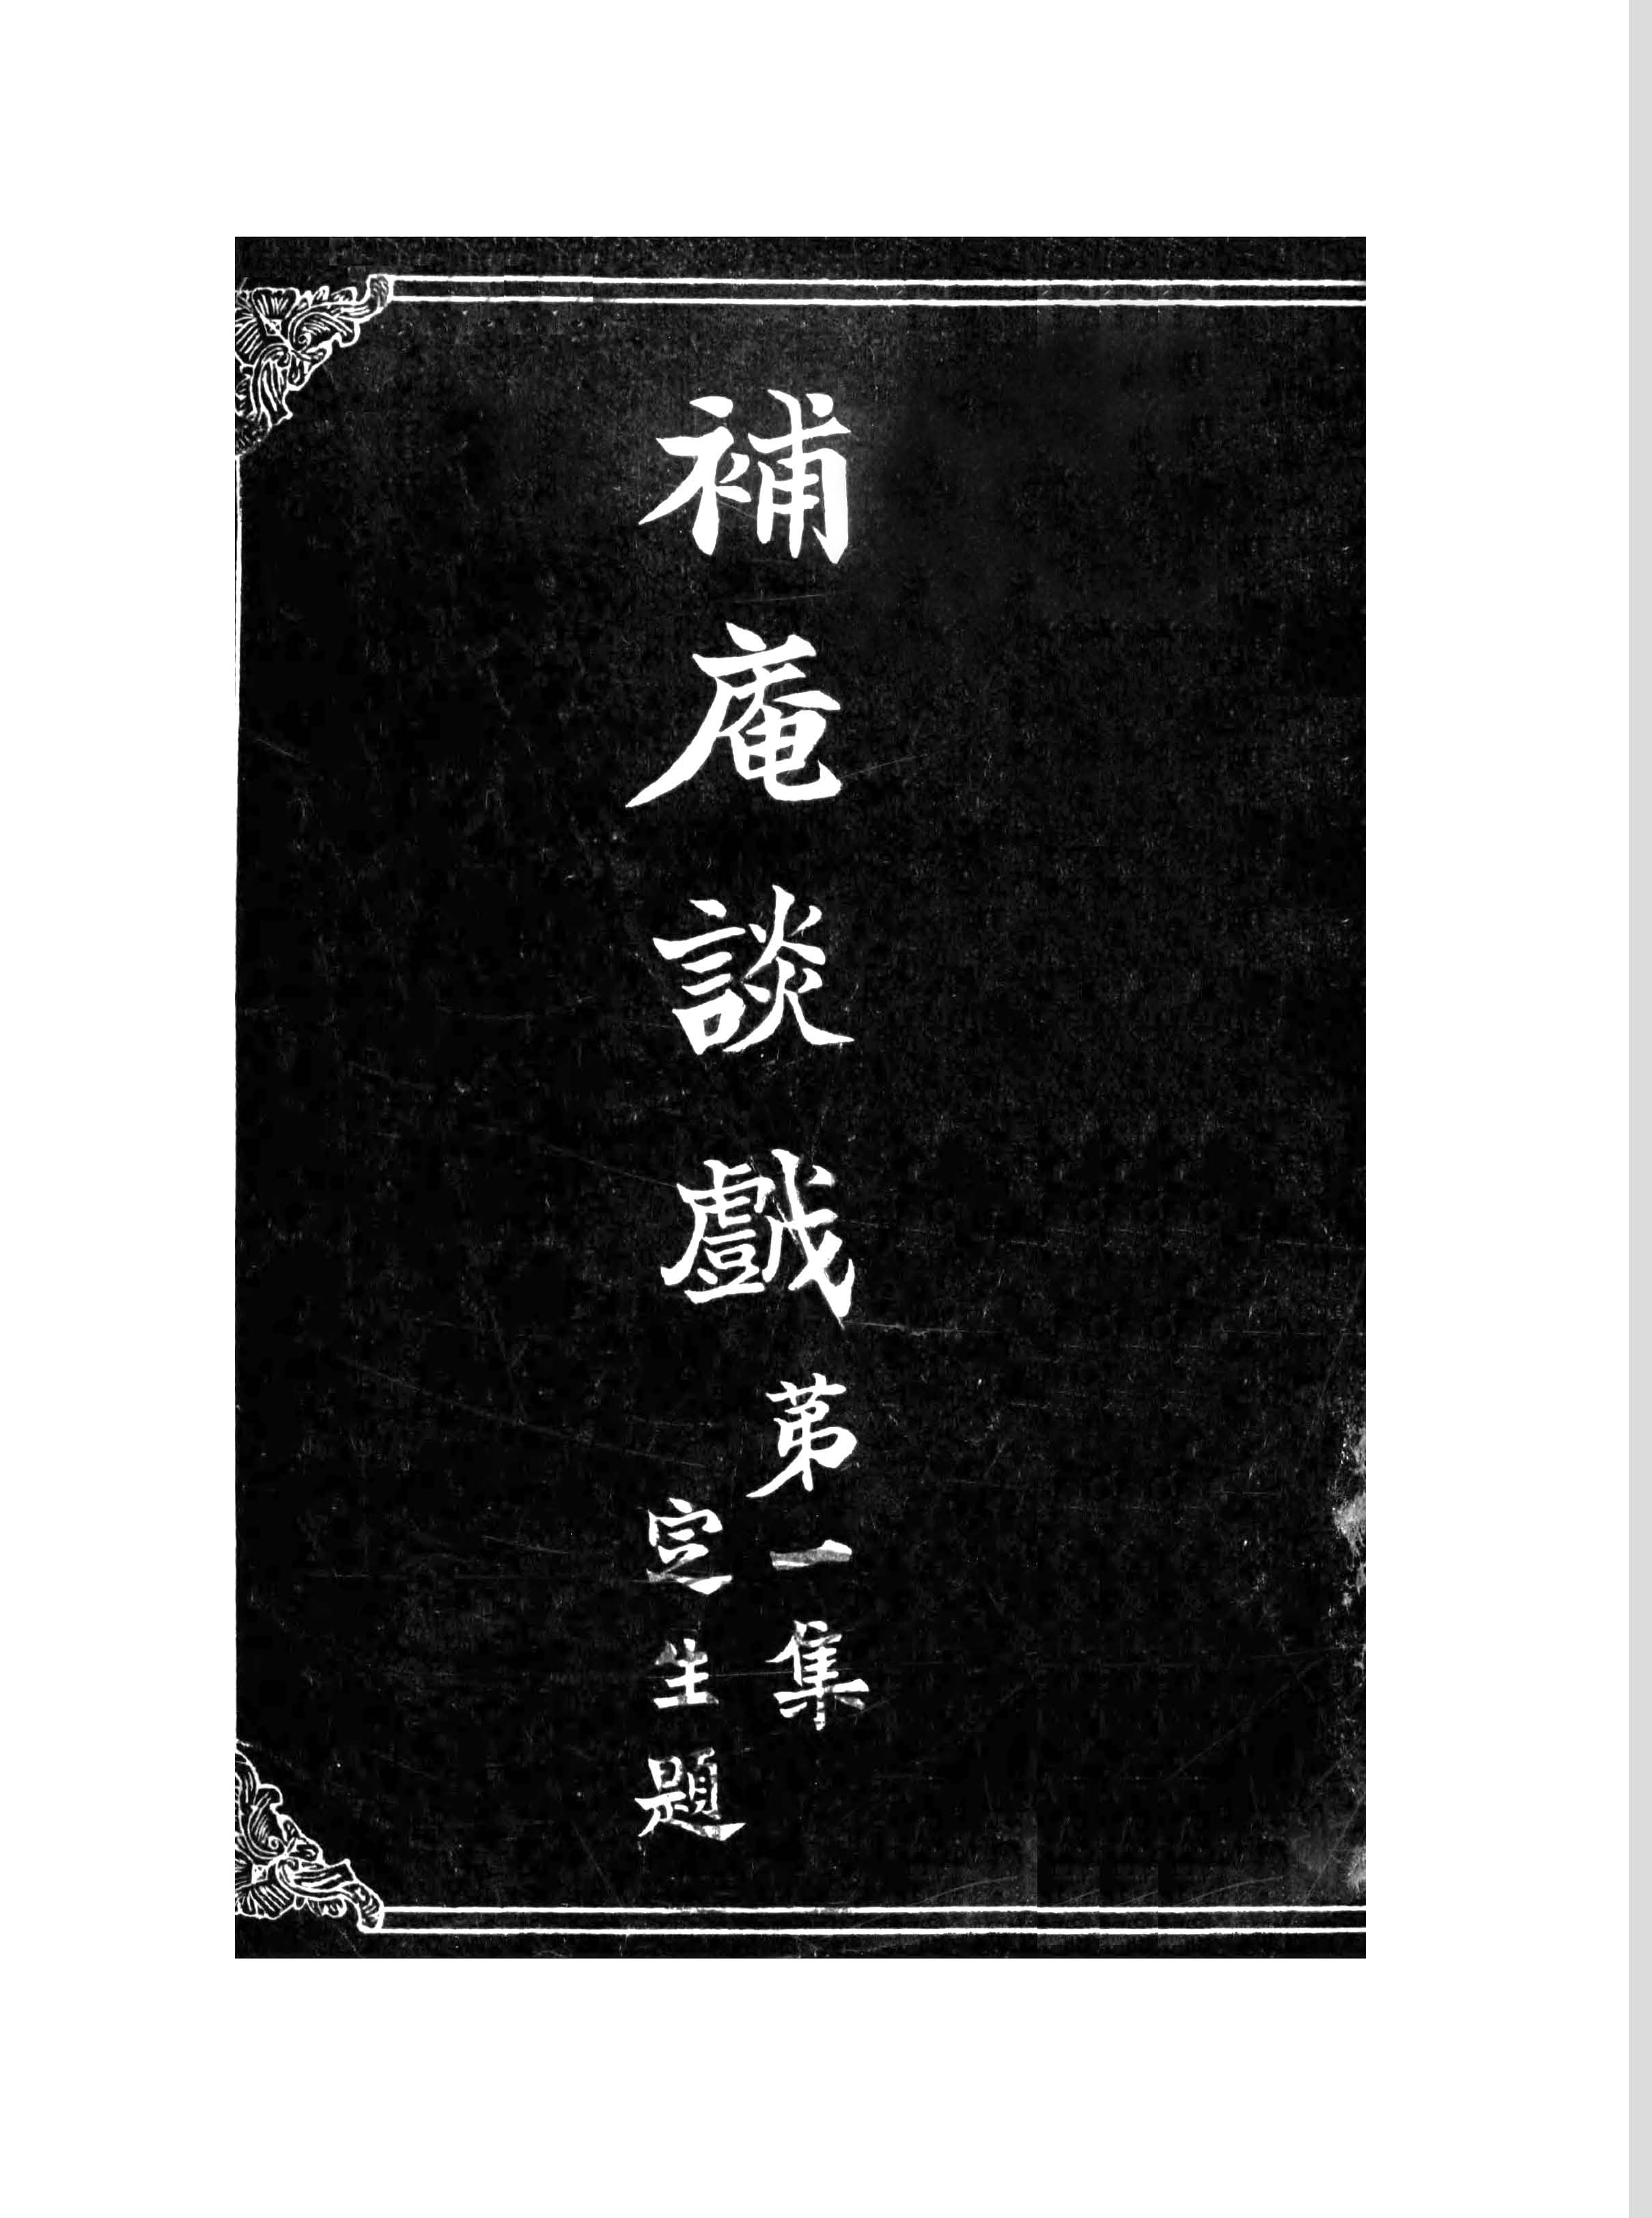 補庵談戲
第一集
定生題